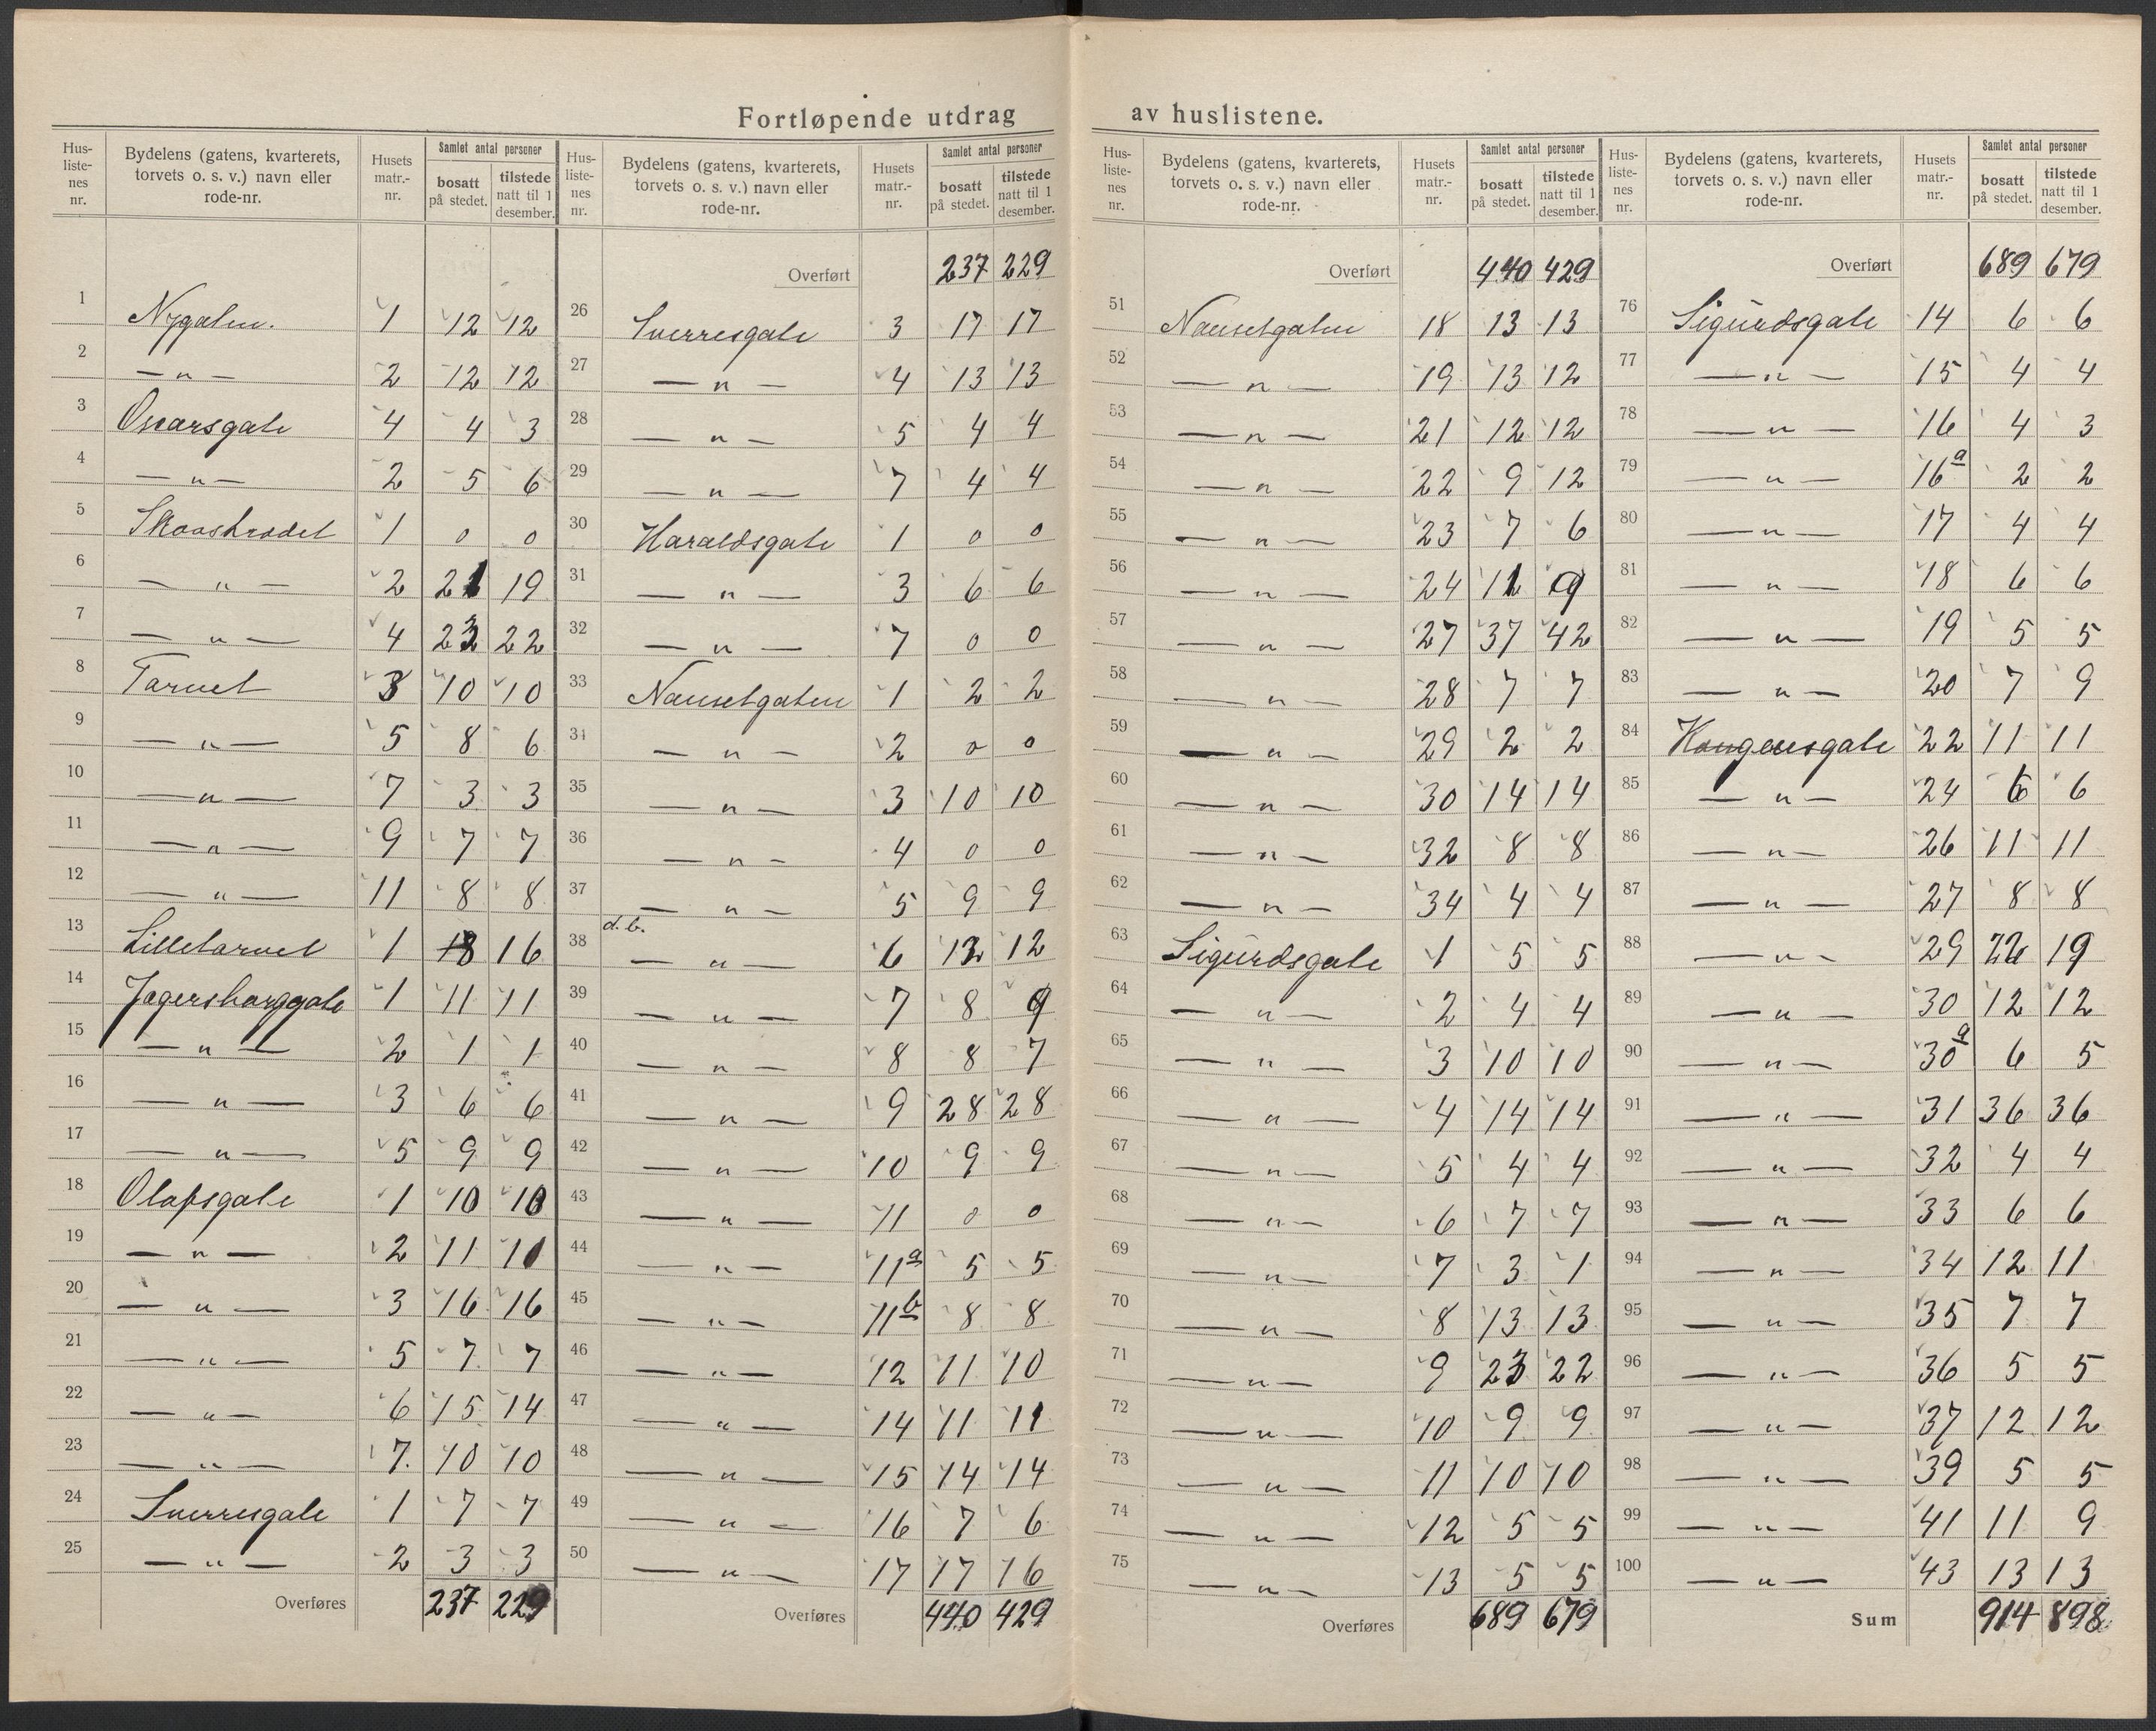 Fortløpende utdrag av huslistene.
Hus-liste-nes nr. | Bydelens (gatens, kvarterets, torvets o. s. v.) navn eller rode-nr. | Husets matr.-nr. | Samlet antal personer bosatt på stedet. | tilstede natt til 1 desember.
1 Nygaten. 1 12 12
2 —„— 2 12 12
3 Oscarsgate 4 4 3
4 —„— 2 5 6
5 1 0 0
6 —„— 2 21 19
7 —„— 4 23 22
8 Torvet 3 10 10
9 —„— 5 8 6
10 —„— 7 3 3
11 —„— 9 7 7
12 —„— 11 8 8
13 Lilletorvet 1 18 16
14 Jegersborggate 1 11 11
15 —„— 2 1 1
16 —„— 3 6 6
17 —„— 5 9 9
18 Olafsgate 1 10 10
19 —„— 2 11 10
20 —„— 3 16 16
21 —„— 5 7 7
22 —„— 6 15 14
23 —„— 7. 10 10
24 Sverresgate 1 7 7
25 —„— 2 3 3
Overføres 237 229
Hus-liste-nes nr. | Bydelens (gatens, kvarterets, torvets o. s. v.) navn eller rode-nr. | Husets matr.-nr. | Samlet antal personer bosatt på stedet. | tilstede natt til 1 desember.
Overført 237 229
26 Sverresgate 3 17 17
27 —„— 4 13 13
28 —„— 5 4 4
29 —„— 7 4 4
30 Haraldsgate 1 0 0
31 —„— 3 6 6
32 —„— 7 0 0
33 Nansetgaten 1 2 2
34 —„— 2 0 0
35 —„— 3 10 10
36 —„— 4 0 0
37 —„— 5 9 9
d. b.
38 —„— 6 12
39 —„— 7 8 9
40 —„— 8 8 7
41 —„— 9 28 28
42 —„— 10 9 9
43 —„— 11 0 0
44 —„— 11a 5 5
45 —„— 11b 8 8
46 —„— 12 11 10
47 —„— 14 11 11
48 —„— 15 14 14
49 —„— 16 7 6
50 —„— 17 17 16
Overføres 440 429
Hus-liste-nes nr. | Bydelens (gatens, kvarterets, torvets o. s. v.) navn eller rode-nr. | Husets matr.-nr. | Samlet antal personer bosatt på stedet. | tilstede natt til 1 desember.
Overført 440 429
51 Nansetgaten 18 13 13
52 —„— 19 13 12
53 —„— 21 12 12
54 —„— 22 9 12
55 —„— 23 7 6
56 —„— 24 11 9
57 —„— 27 37 42
58 —„— 28 7 7
59 —„— 29 2 2
60 —„— 30 14 14
61 —„— 32 8 8
62 —„— 34 4 4
63 Sigurdsgate 1 5 5
64 —„— 2 4 4
65 —„— 3 10 10
66 —„— 4 14 14
67 —„— 5 4 4
68 —„— 6 7 7
69 —„— 7 3 1
70 —„— 8 13 13
71 —„— 9 23 22
72 —„— 10 9 9
73 —„— 11 10 10
74 —„— 12 5 5
75 —„— 13 5 5
Overføres 689 679
Hus-liste-nes nr. | Bydelens (gatens, kvarterets, torvets o. s. v.) navn eller rode-nr. | Husets matr.-nr. | Samlet antal personer bosatt på stedet. | tilstede natt til 1 desember.
Overført 689 679
76 Sigurdsgate 14 6 6
77 —„— 15 4 4
78 —„— 16 4 3
79 —„— 16a 2 2
80 —„— 17 4 4
81 —„— 18 6 6
82 —„— 19 5 5
83 —„— 20 7 9
84 Kongensgate 22 11 11
85 —„— 24 6 6
86 —„— 26 11 11
87 —„— 27 8 8
88 —„— 29 19
89 —„— 30 12 12
90 —„— 30a 6 5
91 —„— 31 36 36
92 —„— 32 4 4
93 —„— 33 6 6
94 —„— 34 12 11
95 —„— 35 7 7
96 —„— 36 5 5
97 —„— 37 12 12
98 —„— 39 5 5
99 —„— 41 11 9
100 —„— 43 13 13
Sum 914 898